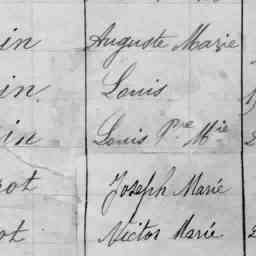 in Auguste Marie
in Louis
in Louis Pre Mie
ot Joseph Marie
ot Victor Marie